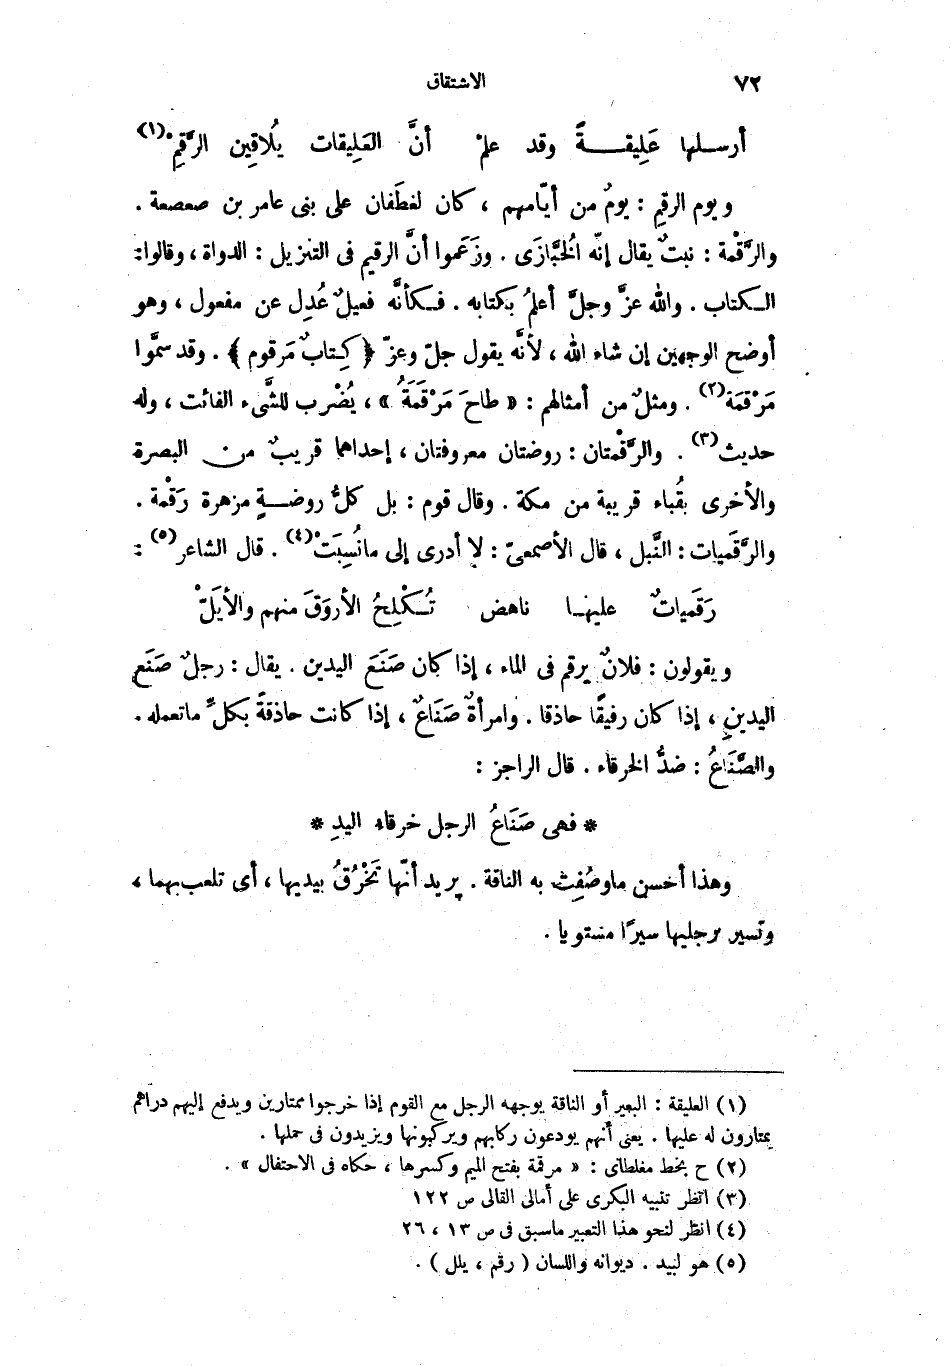 ٧٢
الاشتقاق
أرسلها عَلِيقةً وقد علمْ أنَّ العَلِيقات يُلَاقِين الرَّقِمْ(١)
ويوم الرقِم : يومٌ من أيّامهم ، كان لغطَفان على بنى عامر بن صعصعة .
والرَّقْمة : نبتٌ يقال إنّه الُخبَّازَى . وزَعَموا أنَّ الرقيم فى التنزيل : الدواة ، وقالوا :
الكتاب . والله عزَّ وجلَّ أعلمُ بكتابه . فكأنَّه فعيلٌ عُدِل عن مفعول ، وهو
أوضح الوجهين إن شاء الله ، لأنَّه يقول جلّ وعزّ ﴿ كِتابٌ مَرقوم ﴾ . وقد سمَّوا
مَرْقمَة(٢) . ومثلٌ من أمثالهم : « طاحَ مَرْقَمَةُ » ، يُضْرب للشَّىء الفائت ، وله
حديث(٣) . والرَّقْمتان : روضتان معروفتان ، إحداهما قريبٌ من البصرة
والأخرى بقُباء قريبة من مكة . وقال قوم : بل كلُّ روضةٍ مزهرة رَقْمة .
والرَّقَميات : النَّبل ، قال الأصمعىّ : لا أدرى إلى مانُسِبَتْ(٤) . قال الشاعر(٥) :
رَقَمياتٌ عليها ناهض تُكْلِحُ الأروَقَ منهم والأيَلّْ
ويقولون : فلانٌ يرقم فى الماء ، إذا كان صَنَعَ اليدين . يقال : رجلٌ صَنَع
اليدينِ ، إذا كان رفيقًا حاذقا . وامرأةٌ صَنَاعٌ ، إذا كانت حاذقةً بكلِّ ماتعمله .
والصَّنَاعُ : ضدُّ الخرقاء . قال الراجز :
* فهى صَنَاعُ الرجل خرقاء اليدِ *
وهذا أحسن ماوصُفِت به الناقة . يريد أنّها تَخْرُقُ بيديها ، أى تلعب بهما ،
وتسير برجليها سيرًا مستويا .
(١) العليقة : البعير أو الناقة يوجهه الرجل مع القوم إذا خرجوا ممتارين ويدفع إليهم دراهم
يمتارون له عليها . يعنى أنهم يودعون ركابهم ويركبونها ويزيدون فى حملها .
(٢) ح بخط مغلطاى : « مرقمة بفتح الميم وكسرها ، حكاه فى الاحتفال » .
(٣) انظر تنبيه البكرى على أمالى القالى ص ١٢٢
(٤) انظر لنحو هذا التعبير ماسبق فى ص ١٣ ، ٢٦
(٥) هو لبيد . ديوانه واللسان ( رقم ، يلل ) .